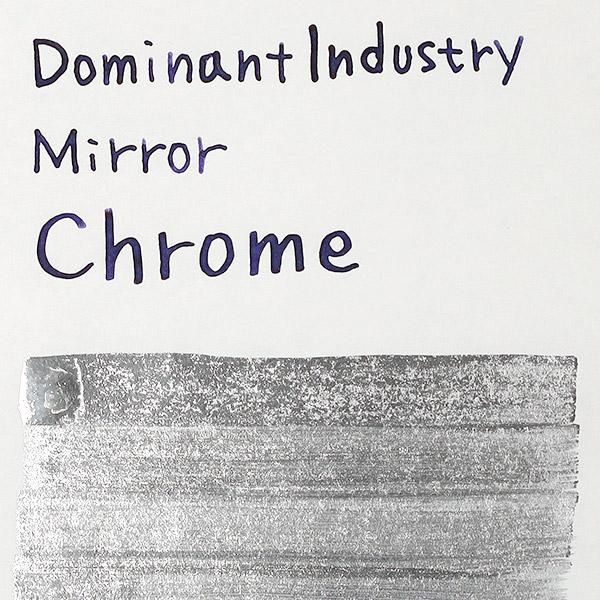 Dominant Industry
Mirror
Chrome